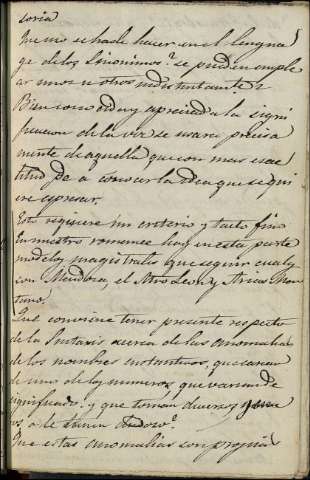 soria
Que uso se ha de hacer en el lengua
ge de los Sinonimos? se pueden emple
ar unos u otros indistintamente?
Bien conocida y apreciada la signi
ficacion de la voz se usara precisa
mente de aquella que con mas exac
titud dé a conocer la idea que se qui
ere espresar.
Esto requiere un criterio y tacto fino
En nuestro romance hay en esta parte
modelos magistrales que seguir cuales
son Mendoza, el Mtro Leon y Arias Mon
tano.
Qué conviene tener presente respecto
de la Sintaxis acerca de las anomalias
de los nombres sustantivos, que carecen
de uno de los numeros, que varian de
significado y que toman diversos gene
ros o le tienen dudoso?
Que estas anomalias son propias